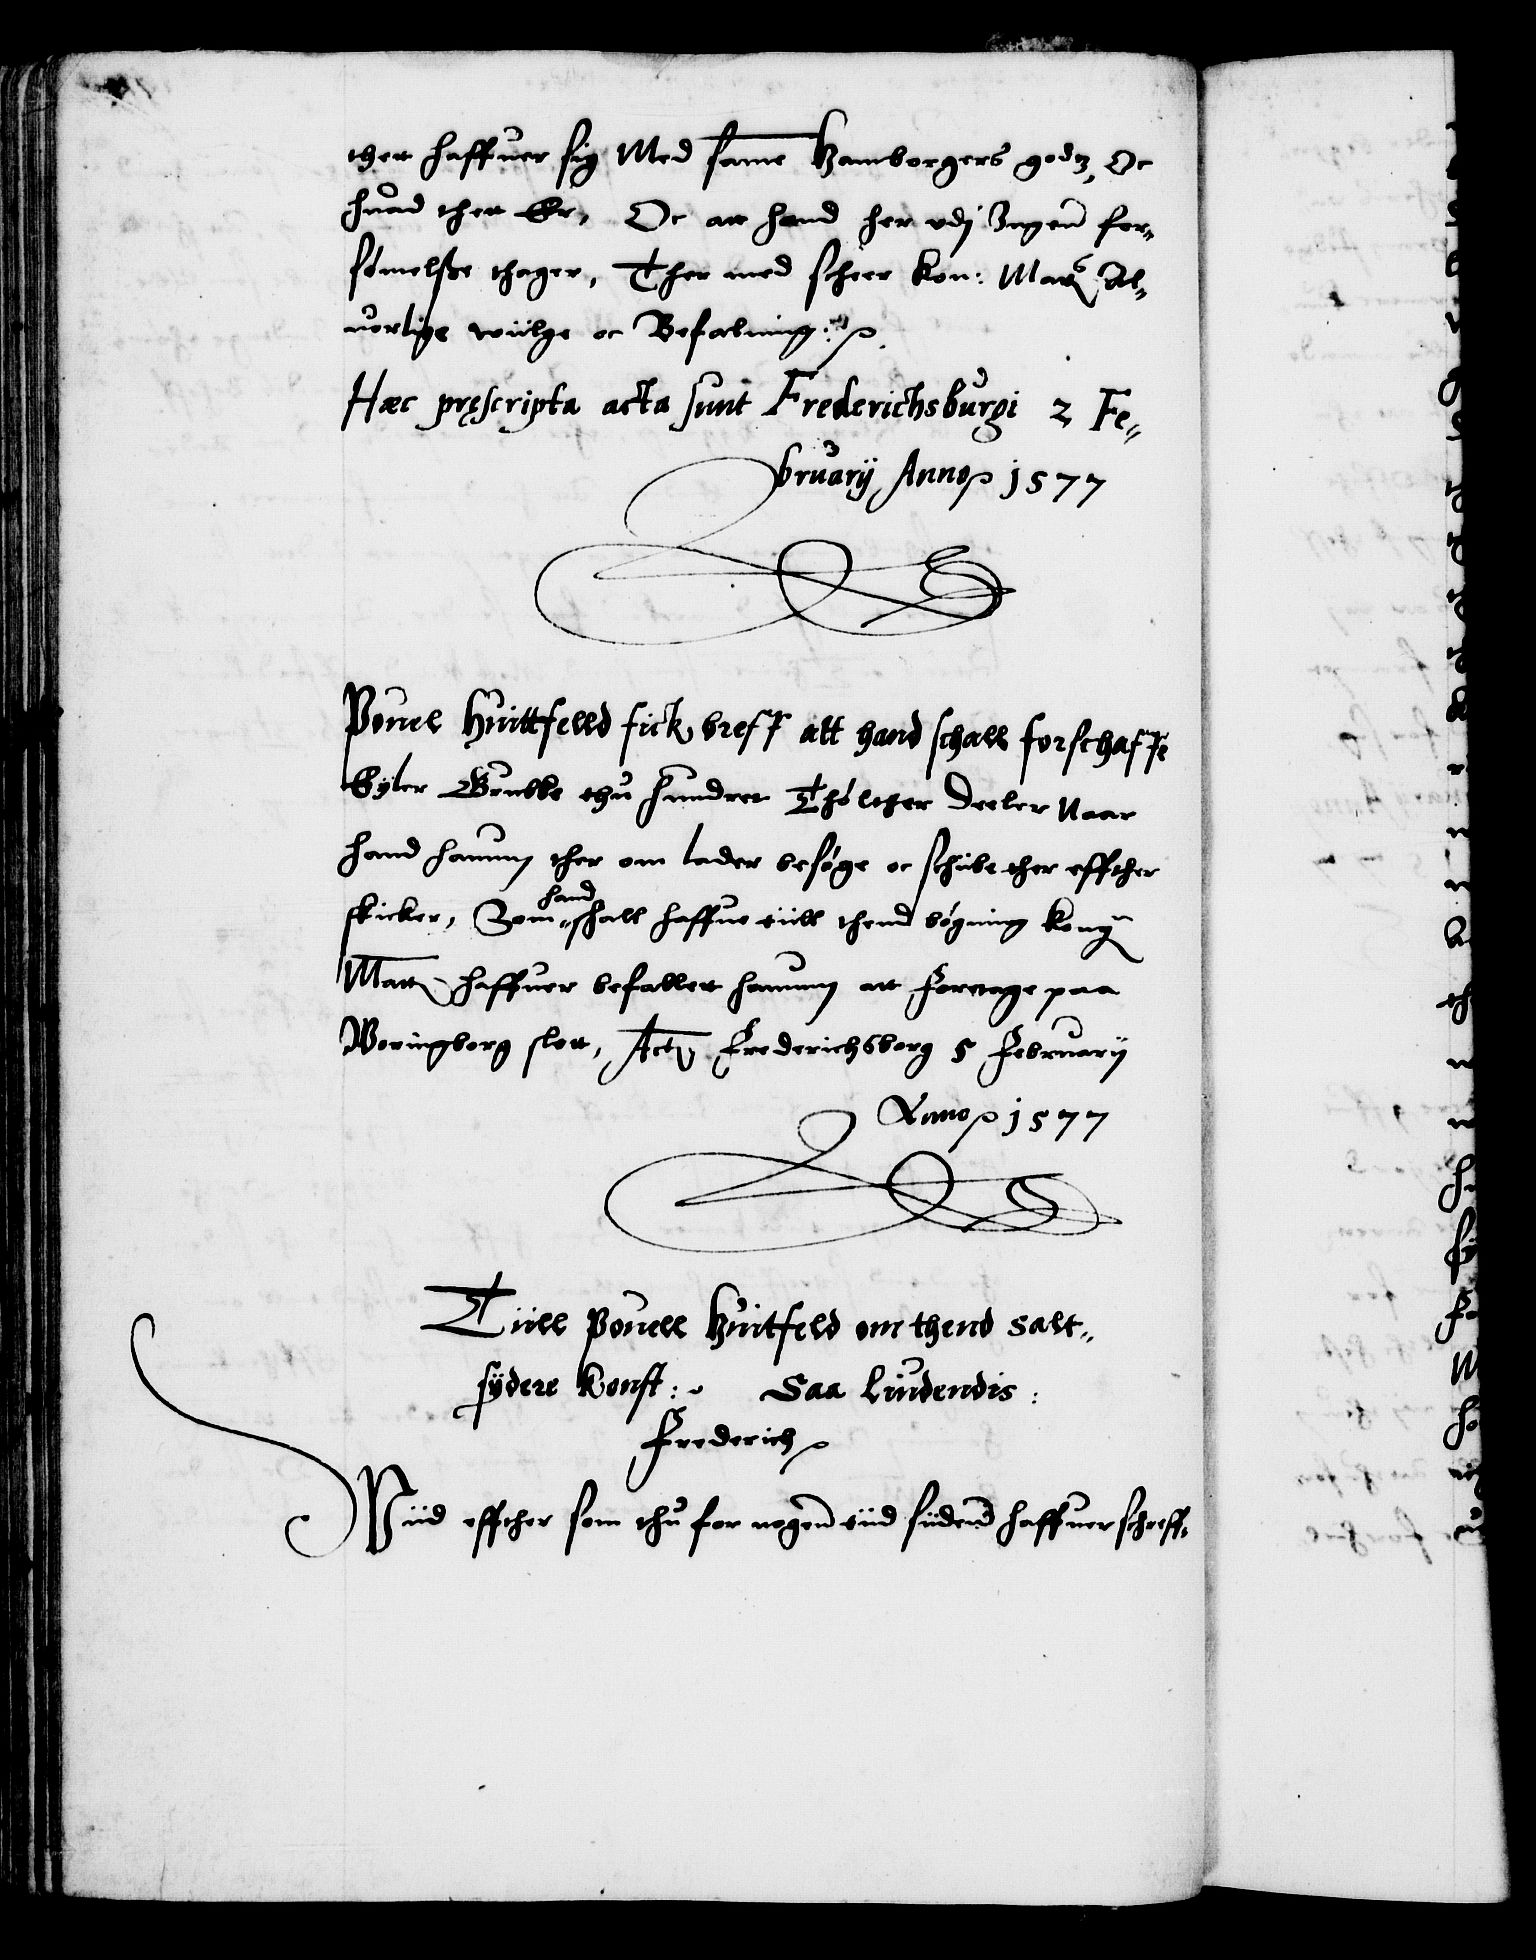 thett haffuer sig Med same Hamborgers godtz, Oc
huad thett Er, Oc att hand her vdj Ingen for-
sømelsse thager, Ther med scheer Kon: Matts Al-
uorlige wiilge oc Befalning:
Hæc pręscripta acta sunt Frederichsburgi 2 Fe-
bruarij Anno 1577
Pouel Huittfelld fick breff att hand schall forschaffe
Eyler Grubbe thu hundret Thóltther Deeler Naar
hand hanum ther om lader besøge oc schiibe ther effther
skicker, Som hand shall haffue tiill thend bógning Kong
Matt haffuer befallett hanum att Foretage paa
Woringborg slott, Act Frederichsborg 5 February
Anno 1577
Tiill Pouell Huitfeld om thend Salt-
sydere Konst: Saa Liudendis:
Frederich
Wiid effther som thu for nogen tiid siiden haffuer schreff-